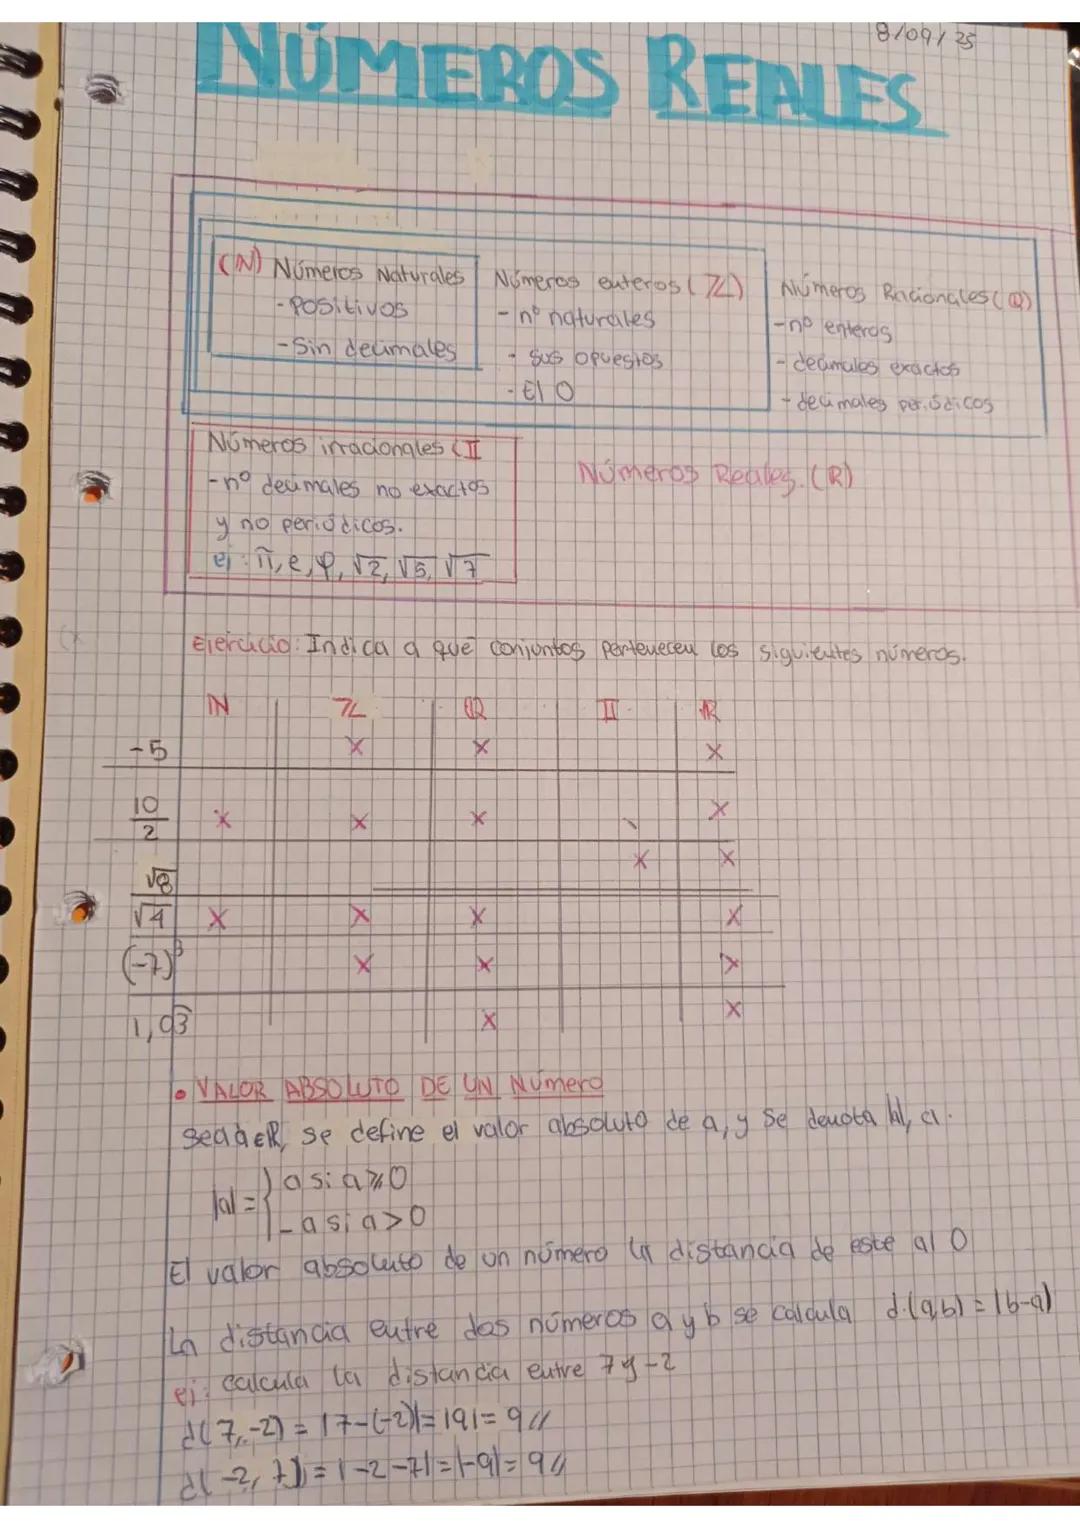 8/09/25
NÚMEROS REALES
(ℕ) Números Naturales
- Positivos
- Sin decimales
Números enteros (ℤ)
- nº naturales
- sus opuestos
- El 0
Números Racionales (ℚ)
- nº enteros
- decimales exactos
- decimales periódicos
Números irracionales (𝕀
- nº decimales no exactos
y no periódicos.
ej: π, e, φ, √2, √5, √7
Números Reales. (ℝ)
Ejercicio: Indica a que conjuntos pertenecen los siguientes números.
ℕ ℤ ℚ 𝕀 ℝ
-5 x x x
10/2 x x x x
√8 x x
√4 x x x x
(-7)³ x x x
1,03 x x
• VALOR ABSOLUTO DE UN Número
Sea a∈ℝ, se define el valor absoluto de a, y se denota |a|, a.
|a| = { a si a ≥ 0
-a si a > 0
El valor absoluto de un número la distancia de este al 0
La distancia entre dos números a y b se calcula d(a,b) = |b-a|
ej: calcula la distancia entre 7 y -2
d(7,-2) = |7-(-2)| = |9| = 9//
d(-2, 7)) = |-2-7| = |-9| = 9//